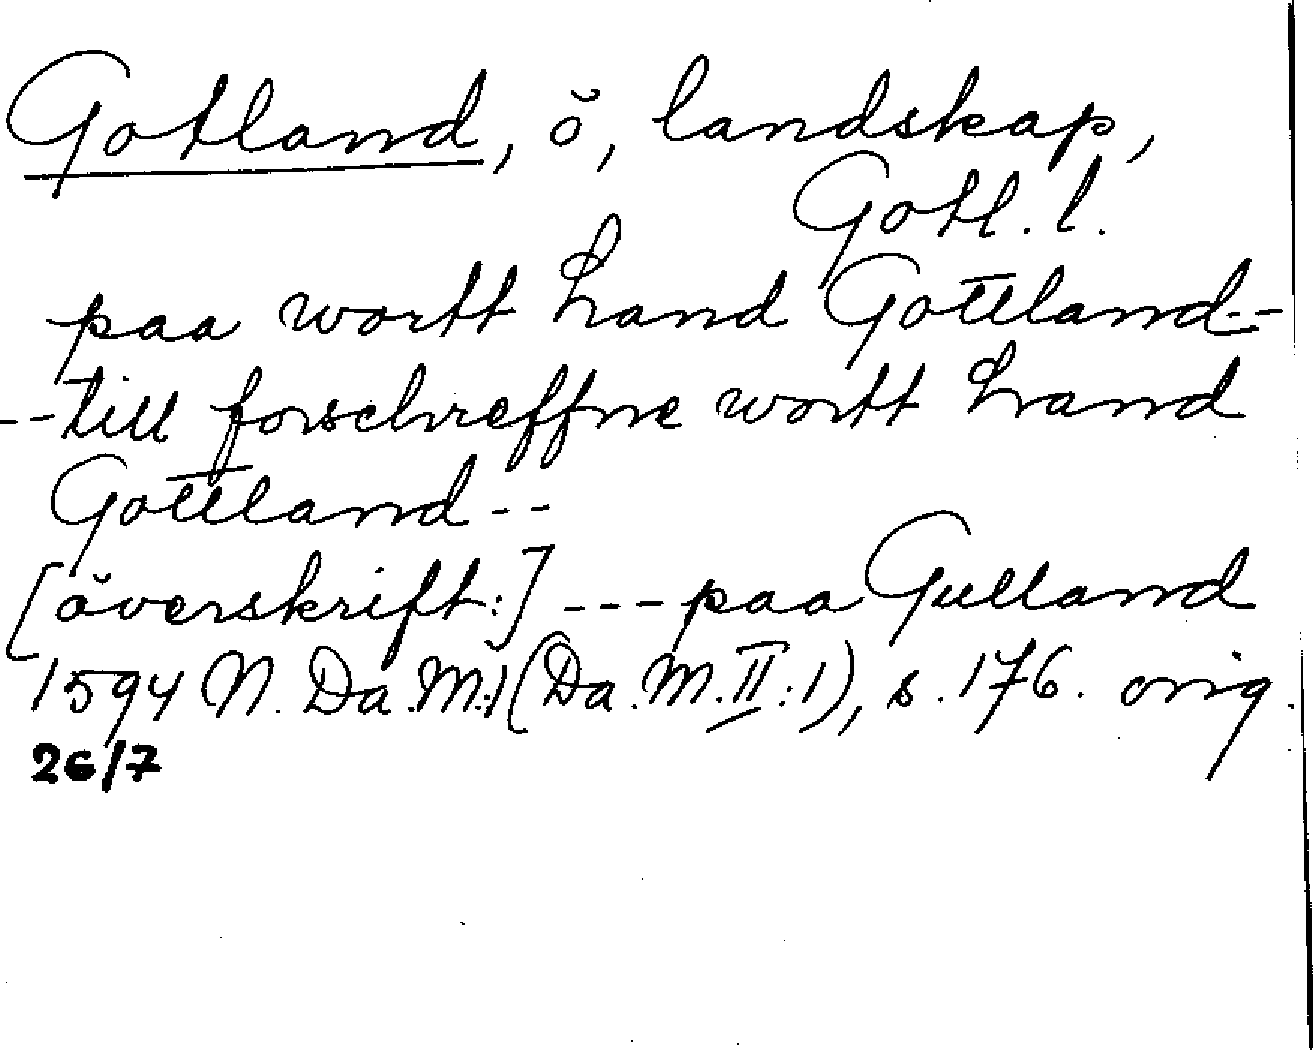 Gotland, ö, landskap,
Gotl. l.
paa wortt Land Gottland--
--till forschreffne wortt Land
Gottland--
[överskrift:] --- paa Gulland
1594 N. Da. M:1 (Da. M. II:1), s. 176. orig.
26/7